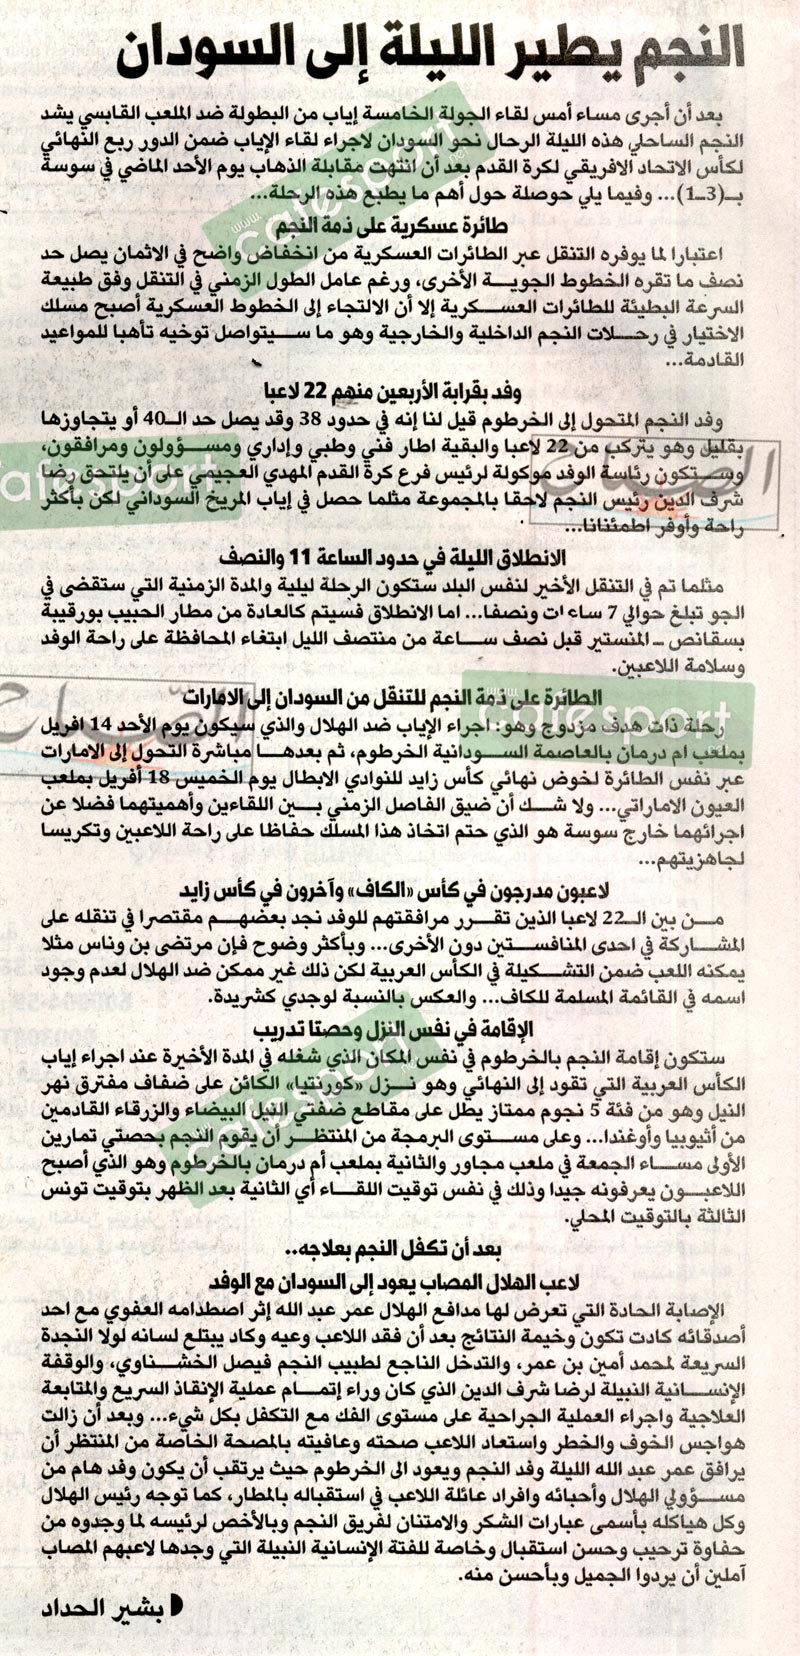 النجم يطير الليلة إلى السودان
بعد أن أجرى مساء أمس لقاء الجولة الخامسة إياب من البطولة ضد الملعب القابسي يشد
النجم الساحلي هذه الليلة الرحال نحو السودان لاجراء لقاء الإياب ضمن الدور ربع النهائي
لكأس الاتحاد الافريقي لكرة القدم بعد أن انتهت مقابلة الذهاب يوم الأحد الماضي في سوسة
بـ(3ـ1)... وفيما يلي حوصلة حول أهم ما يطبع هذه الرحلة...
طائرة عسكرية على ذمة النجم
اعتبارا لما يوفره التنقل عبر الطائرات العسكرية من انخفاض واضح في الاثمان يصل حد
نصف ما تقره الخطوط الجويــة الأخرى، ورغم عامل الطول الزمني في التنقل وفق طبيعة
السرعة البطيئة للطائرات العســكرية إلا أن الالتجاء إلى الخطوط العسكرية أصبح مسلك
الاختيار في رحــلات النجم الداخلية والخارجية وهو ما ســيتواصل توخيه تأهبا للمواعيد
القادمة...
وفد بقرابة الأربعين منهم 22 لاعبا
وفد النجم المتحول إلى الخرطوم قيل لنا إنه في حدود 38 وقد يصل حد الـ40 أو يتجاوزها
بقليل وهو يتركب من 22 لاعبا والبقية اطار فني وطبي وإداري ومســؤولون ومرافقون،
وســتكون رئاسة الوفد موكولة لرئيس فرع كرة القدم المهدي العجيمي على أن يلتحق رضا
شرف الدين رئيس النجم لاحقا بالمجموعة مثلما حصل في إياب المريخ السوداني لكن بأكثر
راحة وأوفر اطمئنانا...
الانطلاق الليلة في حدود الساعة 11 والنصف
مثلما تم في التنقل الأخير لنفس البلد ستكون الرحلة ليلية والمدة الزمنية التي ستقضى في
الجو تبلغ حوالي 7 ساعات ونصفا... اما الانطلاق فسيتم كالعادة من مطار الحبيب بورقيبة
بسقانص ـ المنستير قبل نصف ســاعة من منتصف الليل ابتغاء المحافظة على راحة الوفد
وسلامة اللاعبين.
الطائرة على ذمة النجم للتنقل من السودان إلى الامارات
رحلة ذات هدف مزدوج وهو: اجراء الإياب ضد الهلال والذي سيكون يوم الأحد 14 افريل
بملعب ام درمان بالعاصمة الســودانية الخرطوم، ثم بعدهــا مباشرة التحول إلى الامارات
عبر نفس الطائرة لخوض نهائي كأس زايد للنوادي الابطال يوم الخميس 18 أفريل بملعب
العيون الاماراتي... ولا شــك أن ضيق الفاصل الزمني بــين اللقاءين وأهميتهما فضلا عن
اجرائهما خارج سوسة هو الذي حتم اتخاذ هذا المسلك حفاظا على راحة اللاعبين وتكريسا
لجاهزيتهم...
لاعبون مدرجون في كأس «الكاف» وآخرون في كأس زايد
مــن بين الــ22 لاعبا الذين تقــرر مرافقتهم للوفد نجد بعضهــم مقتصرا في تنقله على
المشــاركة في احدى المنافســتين دون الأخرى... وبأكثر وضوح فإن مرتضى بن وناس مثلا
يمكنه اللعب ضمن التشــكيلة في الكأس العربية لكن ذلك غير ممكن ضد الهلال لعدم وجود
اسمه في القائمة المسلمة للكاف... والعكس بالنسبة لوجدي كشريدة.
الإقامة في نفس النزل وحصتا تدريب
ستكون إقامة النجم بالخرطوم في نفس المكان الذي شغله في المدة الأخيرة عند اجراء إياب
الكأس العربية التي تقود إلى النهائي وهو نــزل «كورنتيا» الكائن على ضفاف مفترق نهر
النيل وهو من فئة 5 نجوم ممتاز يطل على مقاطع ضفتي النيل البيضاء والزرقاء القادمين
من أثيوبيا وأوغندا... وعلى مســتوى البرمجة من المنتظــر أن يقوم النجم بحصتي تمارين
الأولى مســاء الجمعة في ملعب مجاور والثانية بملعب أم درمان بالخرطوم وهو الذي أصبح
اللاعبــون يعرفونه جيدا وذلك في نفس توقيت اللقــاء أي الثانية بعد الظهر بتوقيت تونس
الثالثة بالتوقيت المحلي.
بعد أن تكفل النجم بعلاجه..
لاعب الهلال المصاب يعود إلى السودان مع الوفد
الإصابة الحادة التي تعرض لها مدافع الهلال عمر عبد الله إثر اصطدامه العفوي مع احد
أصدقائه كادت تكون وخيمة النتائج بعد أن فقد اللاعب وعيه وكاد يبتلع لسانه لولا النجدة
السريعة لمحمد أمين بن عمر، والتدخل الناجع لطبيب النجم فيصل الخشــناوي، والوقفة
الإنســانية النبيلة لرضا شرف الدين الذي كان وراء إتمــام عملية الإنقاذ السريع والمتابعة
العلاجية واجراء العملية الجراحية على مستوى الفك مع التكفل بكل شيء... وبعد أن زالت
هواجس الخوف والخطر واستعاد اللاعب صحته وعافيته بالمصحة الخاصة من المنتظر أن
يرافق عمر عبد الله الليلة وفد النجم ويعود الى الخرطوم حيث يرتقب أن يكون وفد هام من
مســؤولي الهلال وأحبائه وافراد عائلة اللاعب في استقباله بالمطار، كما توجه رئيس الهلال
وكل هياكله بأسمى عبارات الشكر والامتنان لفريق النجم وبالأخص لرئيسه لما وجدوه من
حفاوة ترحيب وحسن استقبال وخاصة للفتة الإنسانية النبيلة التي وجدها لاعبهم المصاب
آملين أن يردوا الجميل وبأحسن منه.
بشير الحداد
www.cafesport.net
cafesport
الصباح
www.cafesport
الصباح
cafesport.net